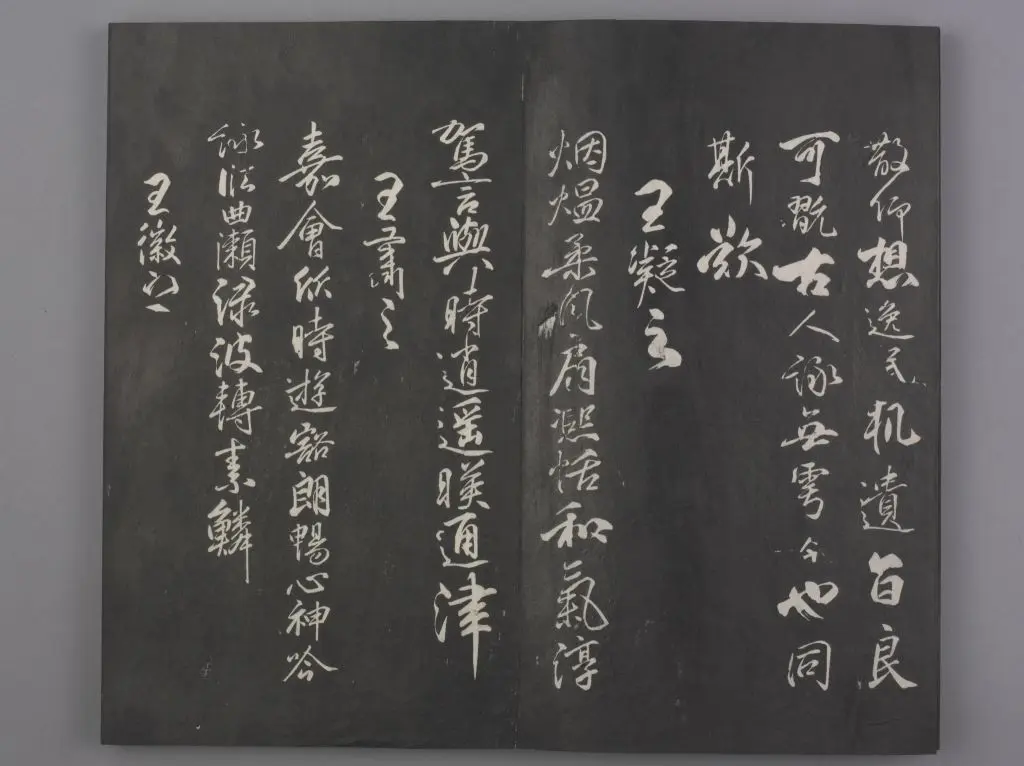 散仰想逸民軌遺音良
可翫古人詠無雩今也同
斯歎
王凝之
烟熅柔風扇熙怡和氣淳
駕言興時逍遥暎通津
王肅之
嘉會欣時遊豁朗暢心神吟
詠臨曲瀨淥波轉素鱗
王徽之